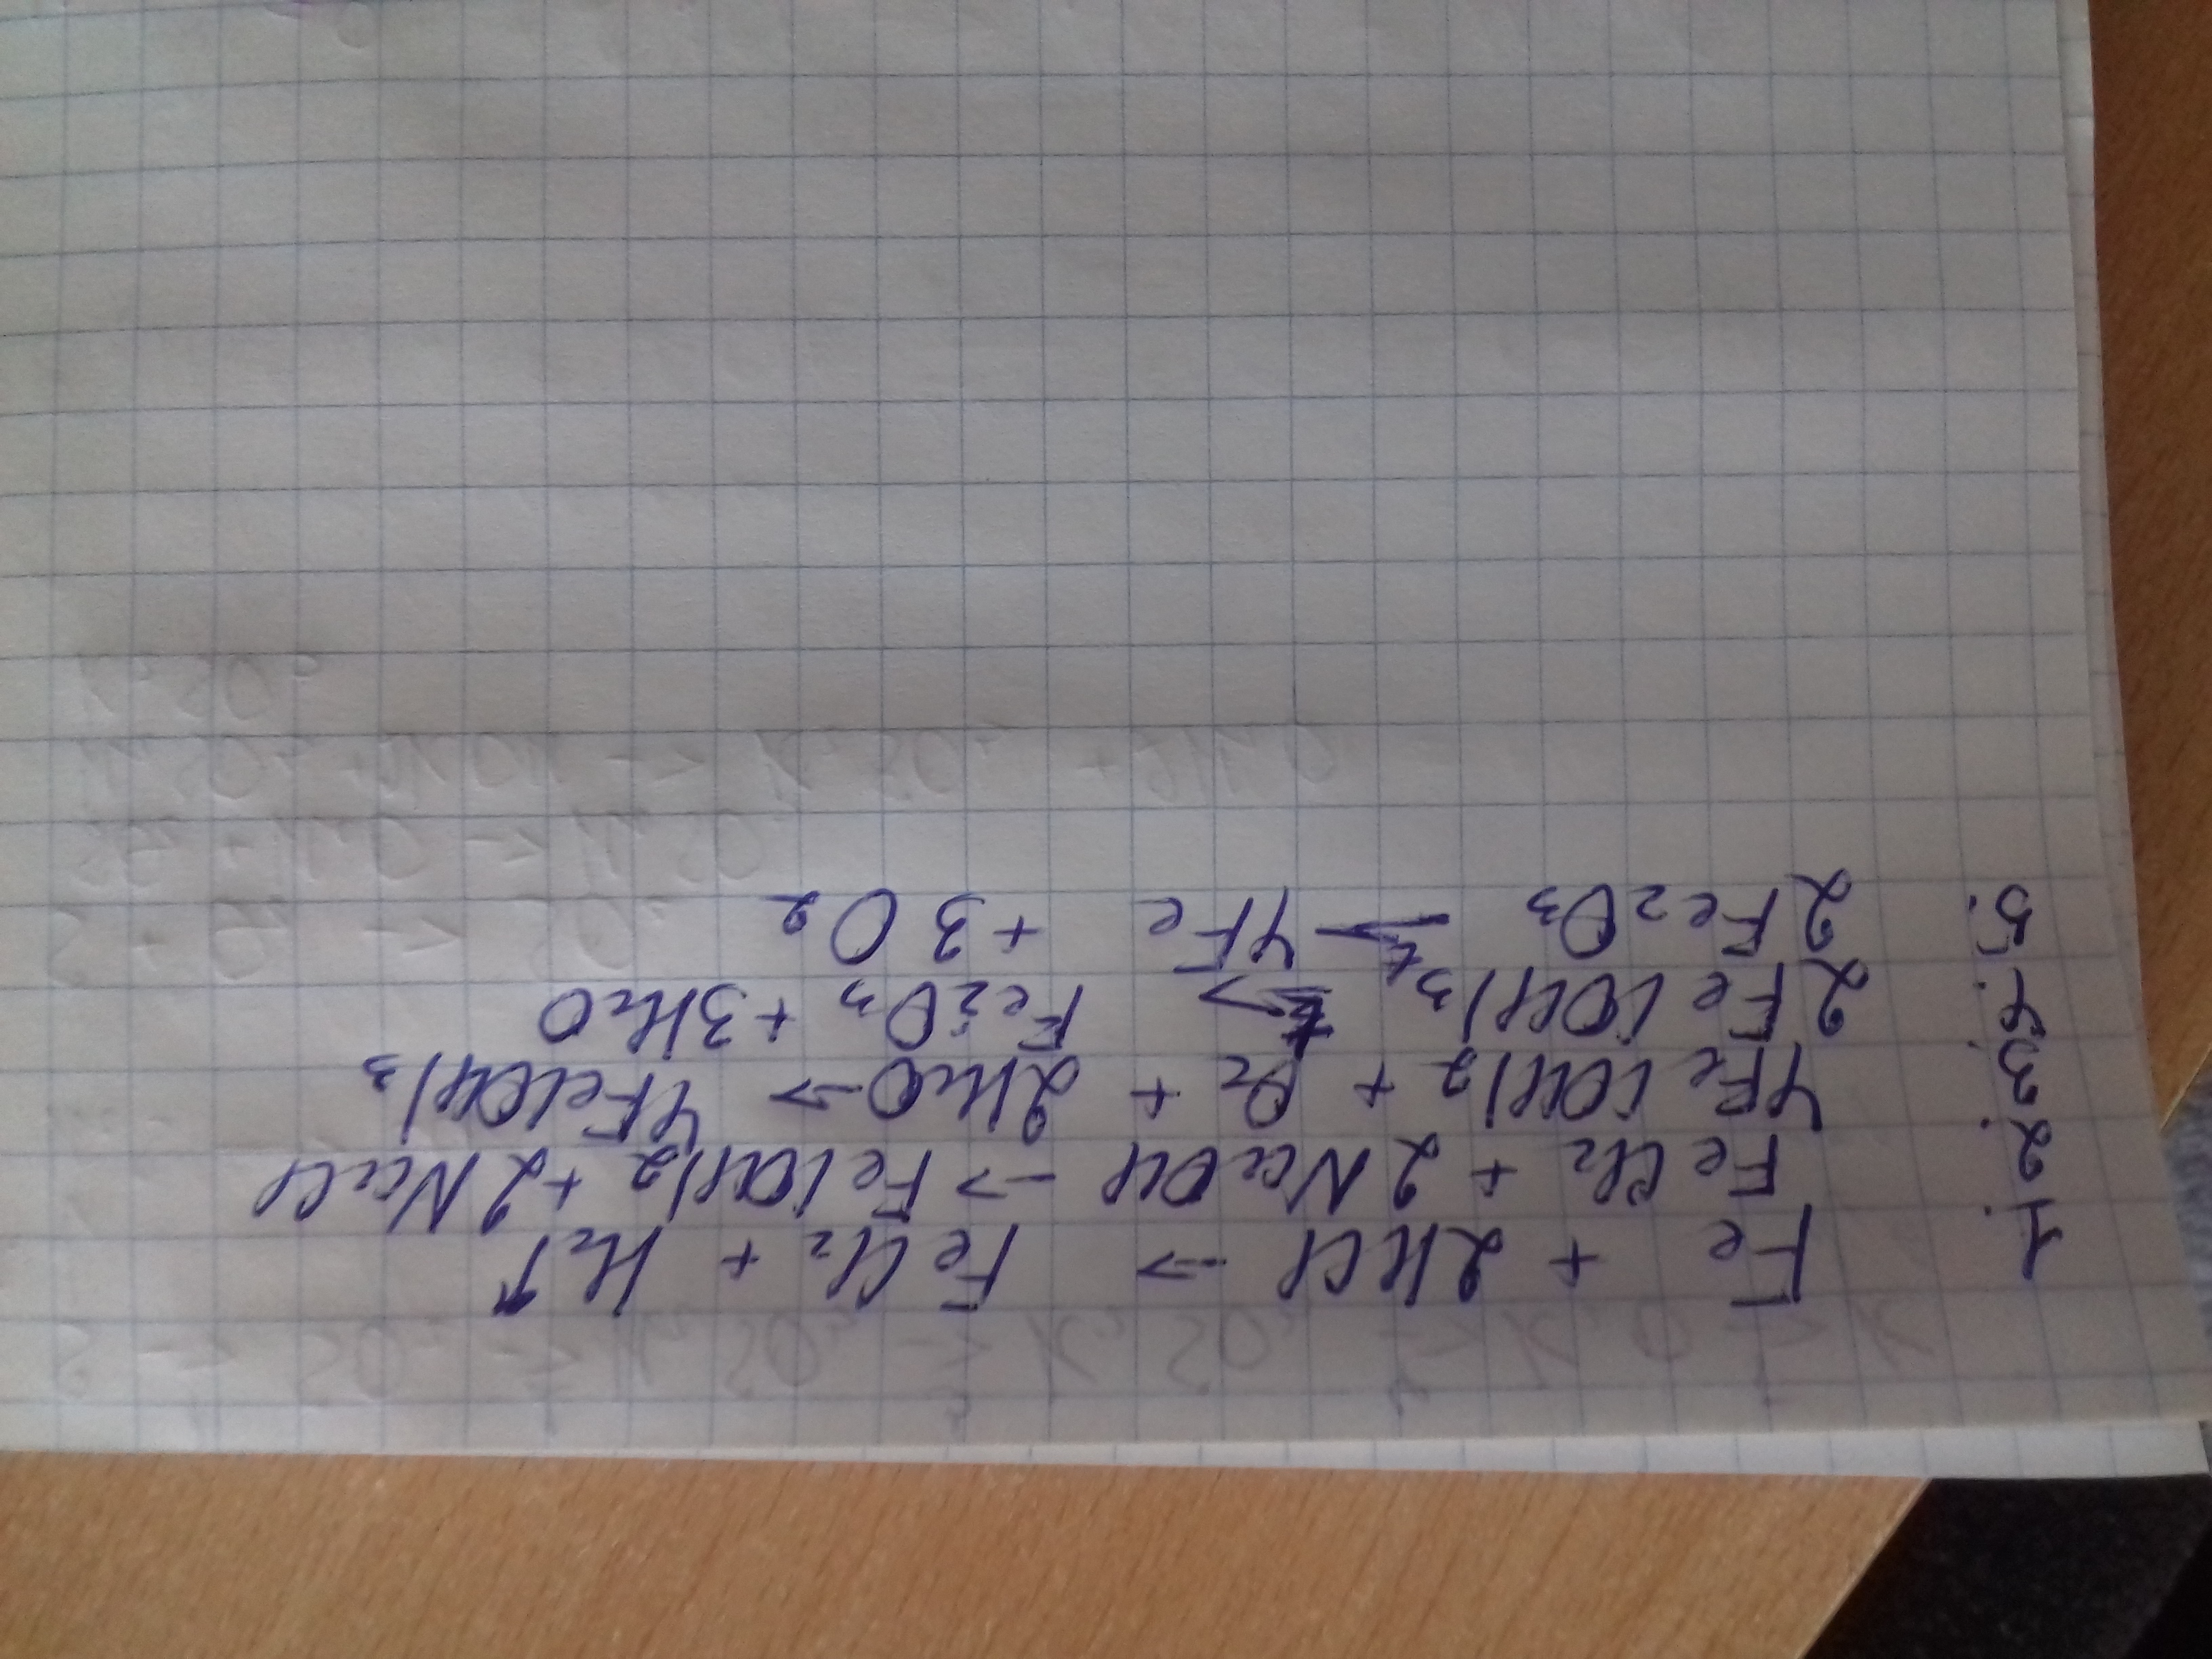 1. Fe + 2HCl → FeCl₂ + H₂↑
2. FeCl₂ + 2NaOH → Fe(OH)₂ + 2NaCl
3. 4Fe(OH)₂ + O₂ + 2H₂O → 4Fe(OH)₃
4. 2Fe(OH)₃ t→ Fe₂O₃ + 3H₂O
5. 2Fe₂O₃ t→ 4Fe + 3O₂